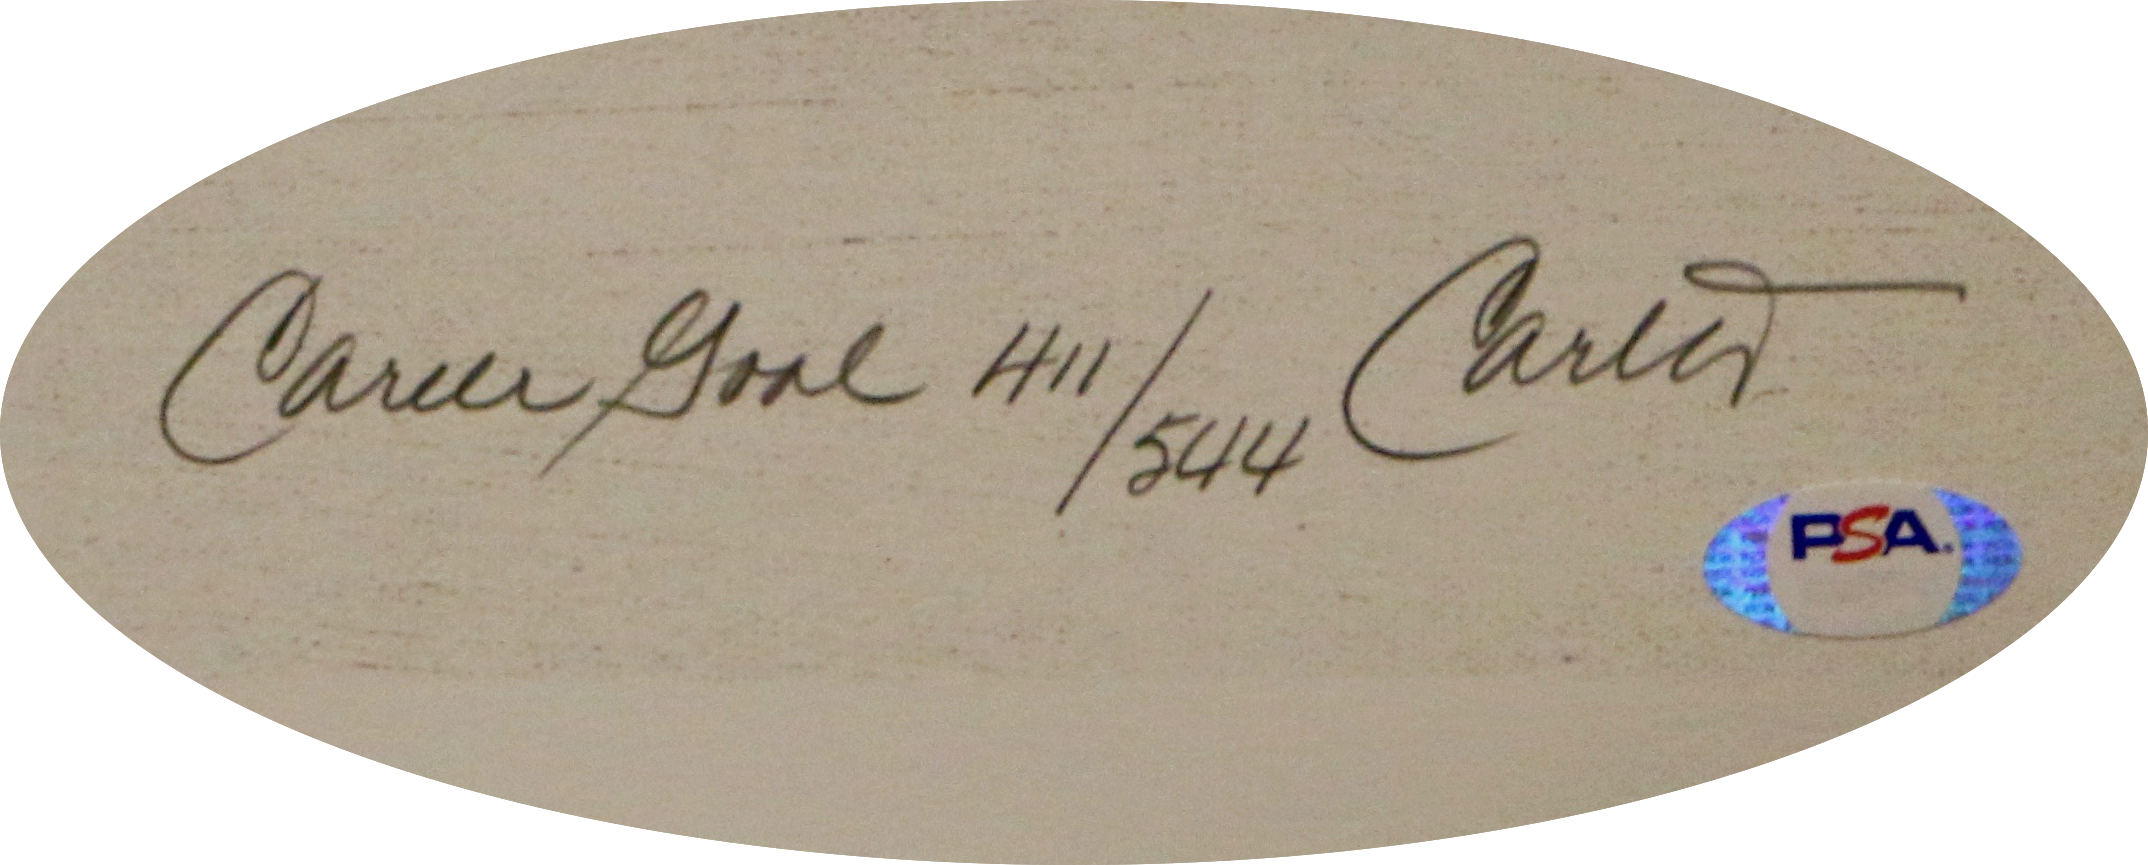 Career Goal 411/544 Carter
PSA.